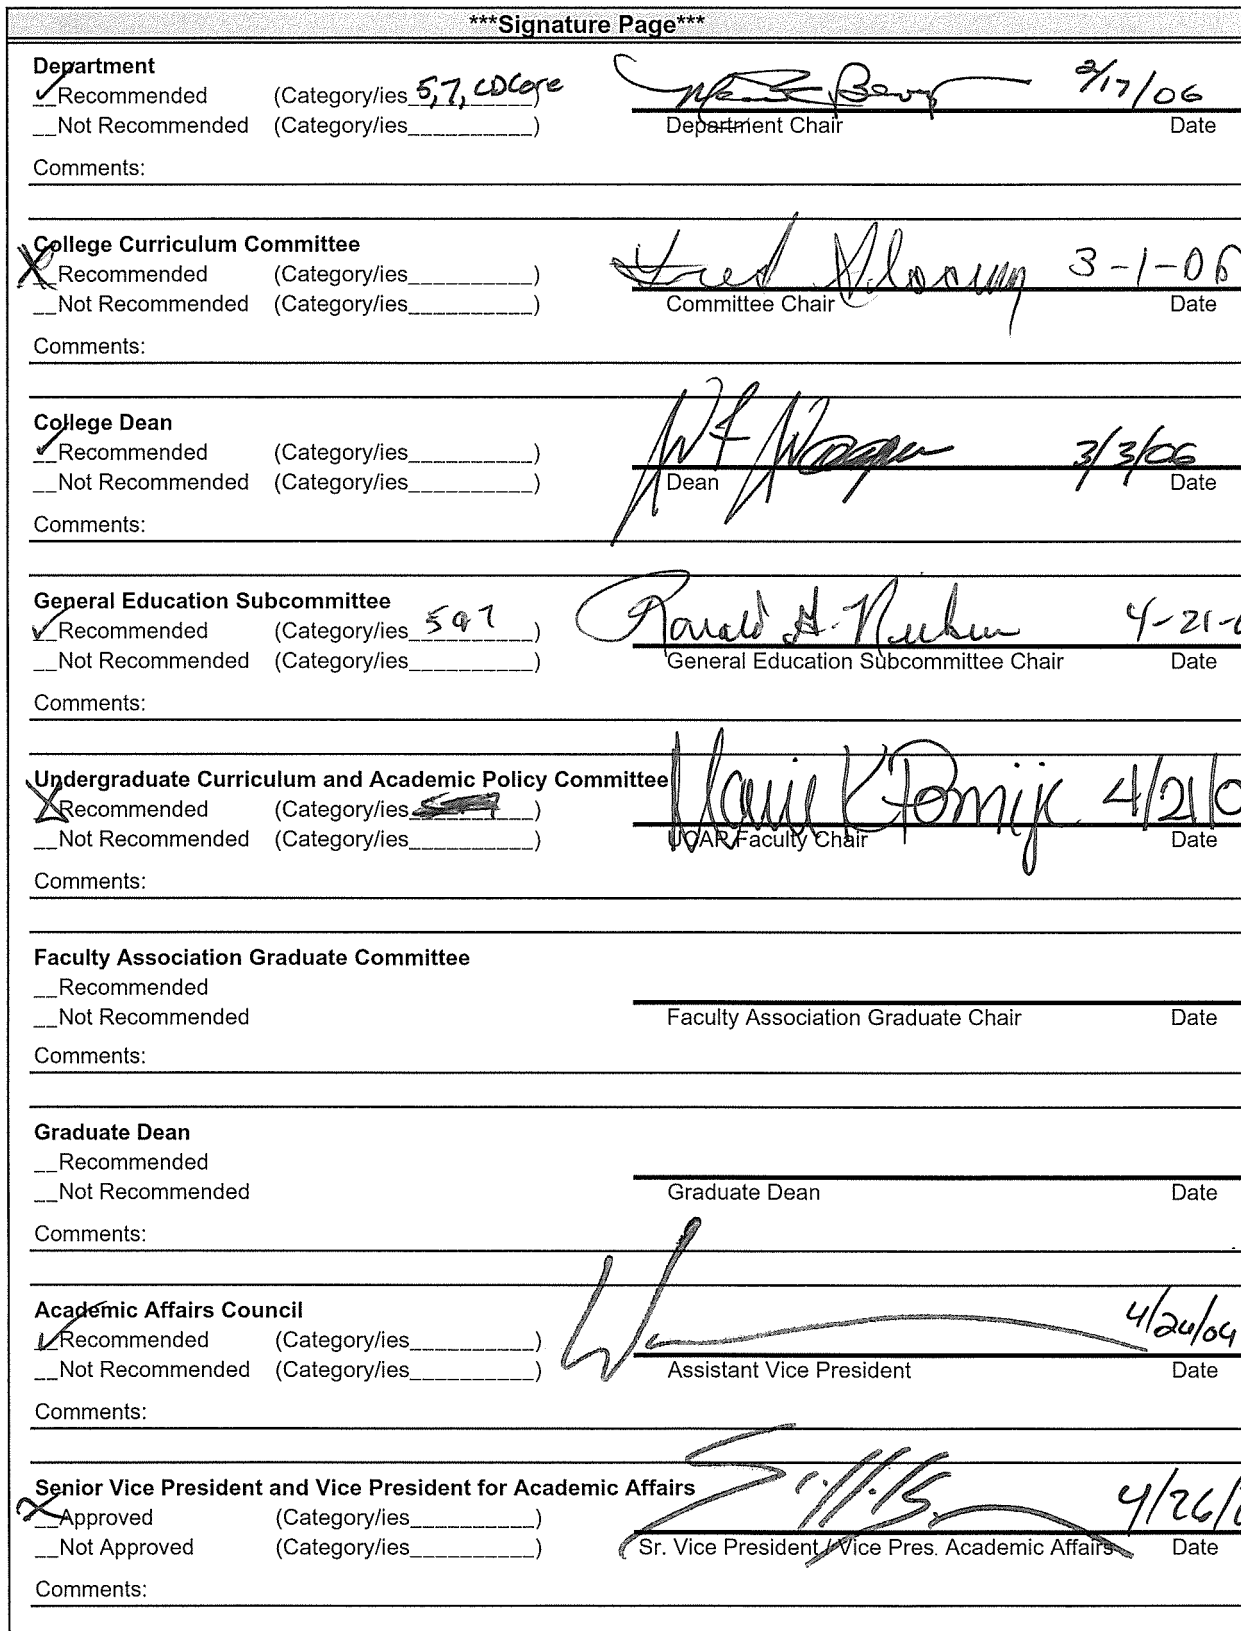 ***Signature Page***
Department
__Recommended (Category/ies 5,7, CDCore)
2/17/06
__Not Recommended (Category/ies__________)
Department Chair Date
Comments:
College Curriculum Committee
X Recommended (Category/ies__________)
Fred 3-1-06
__Not Recommended (Category/ies__________)
Committee Chair Date
Comments:
College Dean
__Recommended (Category/ies__________)
3/3/06
__Not Recommended (Category/ies__________)
Dean Date
Comments:
General Education Subcommittee
__Recommended (Category/ies__________)
Ronald 4-21-
__Not Recommended (Category/ies__________)
General Education Subcommittee Chair Date
Comments:
Undergraduate Curriculum and Academic Policy Committee
X Recommended (Category/ies__________)
K 4/21/0
__Not Recommended (Category/ies__________)
UCAP Faculty Chair Date
Comments:
Faculty Association Graduate Committee
__Recommended
__Not Recommended
Faculty Association Graduate Chair Date
Comments:
Graduate Dean
__Recommended
__Not Recommended
Graduate Dean Date
Comments:
Academic Affairs Council
__Recommended (Category/ies__________)
__Not Recommended (Category/ies__________)
Assistant Vice President Date
Comments:
Senior Vice President and Vice President for Academic Affairs
__Approved (Category/ies__________)
4/26/
__Not Approved (Category/ies__________)
Sr. Vice President / Vice Pres. Academic Affairs Date
Comments: